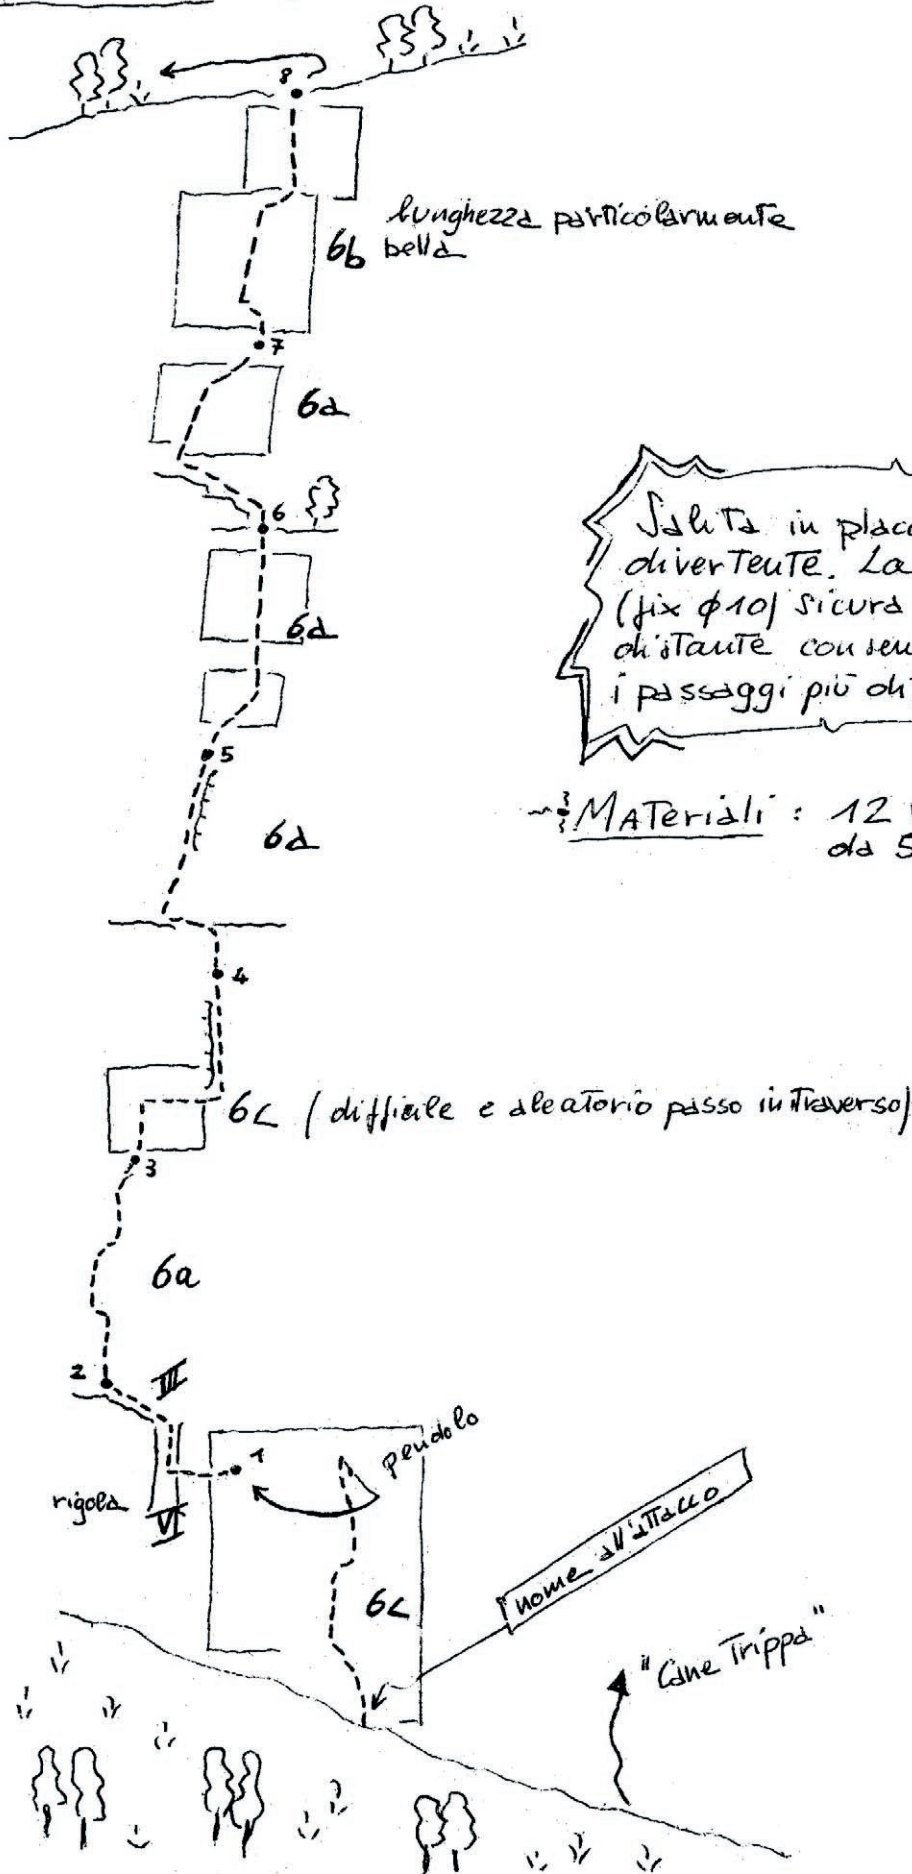 8
6b lunghezza particolarmente
bella
7
6a
6
6a
5
6a
Salita in placc
divertente. La
(fix φ10) sicura
distante consen
i passaggi più di
Materiali : 12
da 5
4
6c (difficile e aleatorio passo in traverso)
3
6a
2
III
1
pendolo
rigola
VI
6c
nome all'attacco
"Cane Trippa"